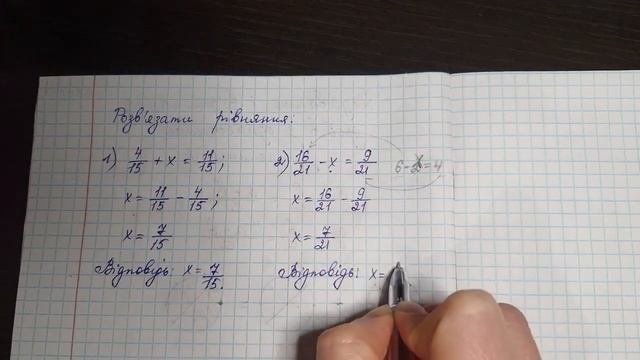 Розв'язати рівняння:
1) 4/15 + x = 11/15;
x = 11/15 - 4/15;
x = 7/15
Відповідь: x = 7/15.
2) 16/21 - x = 9/21
6-2=4
x = 16/21 - 9/21
x = 7/21
Відповідь: x=